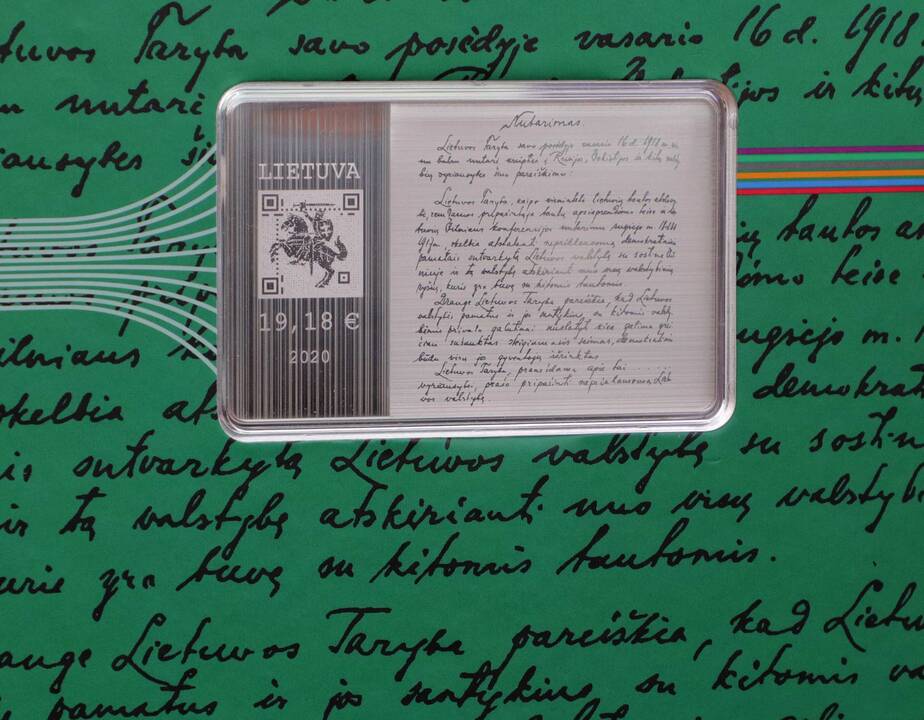 tuvos Taryba savo posėdyje vasario 16 d. 1918
nutarė
ijos ir kitų
iausybes
LIETUVA
19,18 €
2020
Nutarimas.
Lietuvos Taryba savo posėdyje vasario 16 d. 1918 m. vi
nu balsu nutarė kreiptis į Rusijos, Vokietijos ir kitų valsty
bių vyriausybes šiuo pareiškimu:
Lietuvos Taryba, kaipo vienintelė lietuvių tautos atstovy
bė, remdamos pripažintąja tautų apsisprendimo teise ir lie
tuvių Vilniaus konferencijos nutarimu rugsėjo m. 18-23 d.
1917 m., skelbia atstatanti nepriklausomą, demokratiniais
pamatais sutvarkytą Lietuvos valstybę su sostine Vil
niuje ir tą valstybę atskirianti nuo visų valstybinių
ryšių, kurie yra buvę su kitomis tautomis.
Drauge Lietuvos Taryba pareiškia, kad Lietuvos
valstybės pamatus ir jos santykius su kitomis valsty
bėmis privalo galutinai nustatyti kiek galima grei
čiau sušauktas steigiamasis seimas, demokratiniu
būdu visų jo gyventojų išrinktas.
Lietuvos Taryba, pranešdama apie tai
vyriausybei, prašo pripažinti nepriklausomą Lietu
vos valstybę.
ių tautos at
imo teise
ilniaus
ugsėjo m.
skelbia ats
demokrat
is sutvarkytą Lietuvos valstybę su sostin
ir tą valstybę atskirianti nuo visų valstyb
urie yra buvę su kitomis tautomis.
auge Lietuvos Taryba pareiškia, kad Lietu
pamatus ir jos santykius su kitomis va